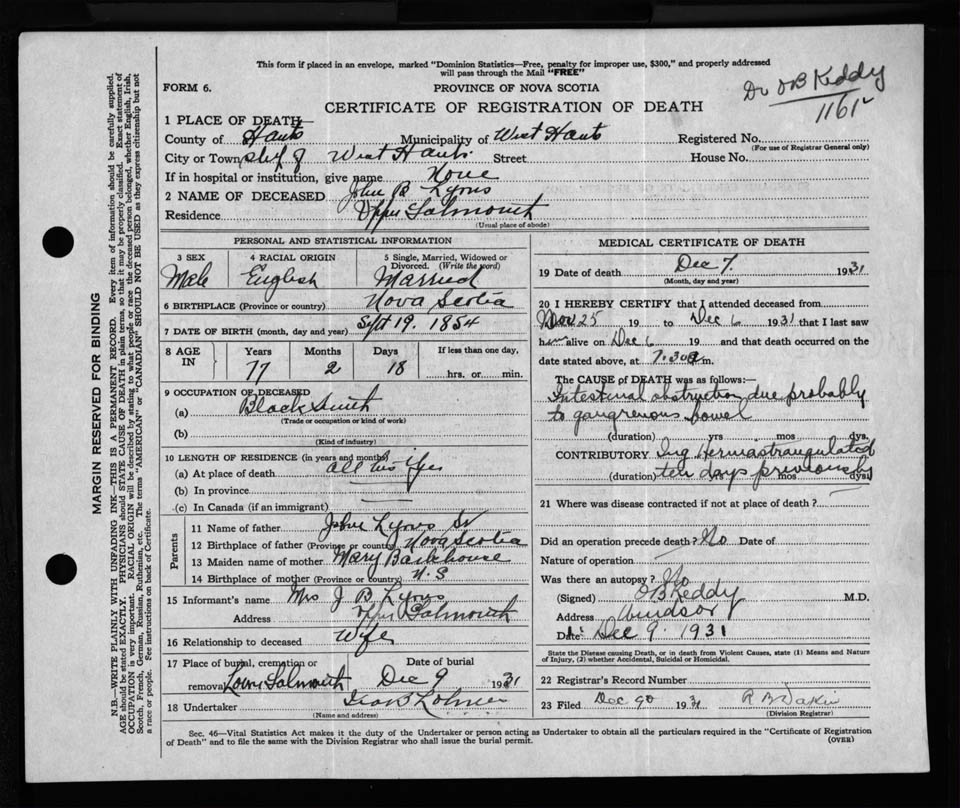 This form if placed in an envelope, marked "Dominion Statistics—Free, penalty for improper use, $300," and properly addressed
will pass through the Mail "FREE"
FORM 6.
PROVINCE OF NOVA SCOTIA
Dr O B Keddy
CERTIFICATE OF REGISTRATION OF DEATH
1 PLACE OF DEATH—
County of Hants Municipality of West Hants Registered No.
(For use of Registrar General only)
City or Town West Hants. Street House No.
If in hospital or institution, give name None
2 NAME OF DECEASED John B Lyons
Residence Upper Falmouth
(Usual place of abode)
PERSONAL AND STATISTICAL INFORMATION
3 SEX 4 RACIAL ORIGIN 5 Single, Married, Widowed or
Divorced. (Write the word)
Male English Married
6 BIRTHPLACE (Province or country) Nova Scotia
7 DATE OF BIRTH (month, day and year) Sept 19. 1854
8 AGE IN Years Months Days If less than one day,
77 2 18 hrs. or min.
9 OCCUPATION OF DECEASED
(a) Black Smith
(Trade or occupation or kind of work)
(b)
(Kind of industry)
10 LENGTH OF RESIDENCE (in years and months)
(a) At place of death all his life
(b) In province
(c) In Canada (if an immigrant)
Parents
11 Name of father John Lyons Sr
12 Birthplace of father (Province or country) Nova Scotia
13 Maiden name of mother Mary Barkhouse
14 Birthplace of mother (Province or country) N. S
15 Informant's name Mrs J B Lyons
Address Upper Falmouth
16 Relationship to deceased Wife
17 Place of burial, cremation or Date of burial
removal Lower Falmouth Dec 9 1931
18 Undertaker
(Name and address)
MEDICAL CERTIFICATE OF DEATH
19 Date of death Dec 7. 1931
(Month, day and year)
20 I HEREBY CERTIFY that I attended deceased from
Nov 25 19 to Dec 6 1931 that I last saw
him alive on Dec 6 19 and that death occurred on the
date stated above, at 7.30 a m.
The CAUSE of DEATH was as follows:—
Intestinal obstruction due probably
to gangrenous bowel
(duration) yrs. mos. dys.
CONTRIBUTORY Ing Hernia strangulated
(duration) ten days previously yrs. mos. dys.
21 Where was disease contracted if not at place of death?
Did an operation precede death? No Date of
Nature of operation
Was there an autopsy? No
(Signed) O B Keddy M.D.
Address Windsor
Date Dec 9. 1931
State the Disease causing Death, or in death from Violent Causes, state (1) Means and Nature
of Injury, (2) whether Accidental, Suicidal or Homicidal.
22 Registrar's Record Number
23 Filed Dec 1931 R B Dakin
(Division Registrar)
Sec. 46—Vital Statistics Act makes it the duty of the Undertaker or person acting as Undertaker to obtain all the particulars required in the "Certificate of Registration
of Death" and to file the same with the Division Registrar who shall issue the burial permit. (OVER)
MARGIN RESERVED FOR BINDING
N.B.—WRITE PLAINLY WITH UNFADING INK—THIS IS A PERMANENT RECORD. Every item of information should be carefully supplied.
AGE should be stated EXACTLY. PHYSICIANS should STATE CAUSE OF DEATH in plain terms, so that it may be properly classified. Exact statement of
OCCUPATION is very important. RACIAL ORIGIN will be described by stating to what people or race the deceased person belonged, whether English, Irish,
Scotch, French, German, Russian, Ruthenian, etc. The terms "AMERICAN" or "CANADIAN" SHOULD NOT BE USED as they express citizenship but not
a race or people. See instructions on back of Certificate.